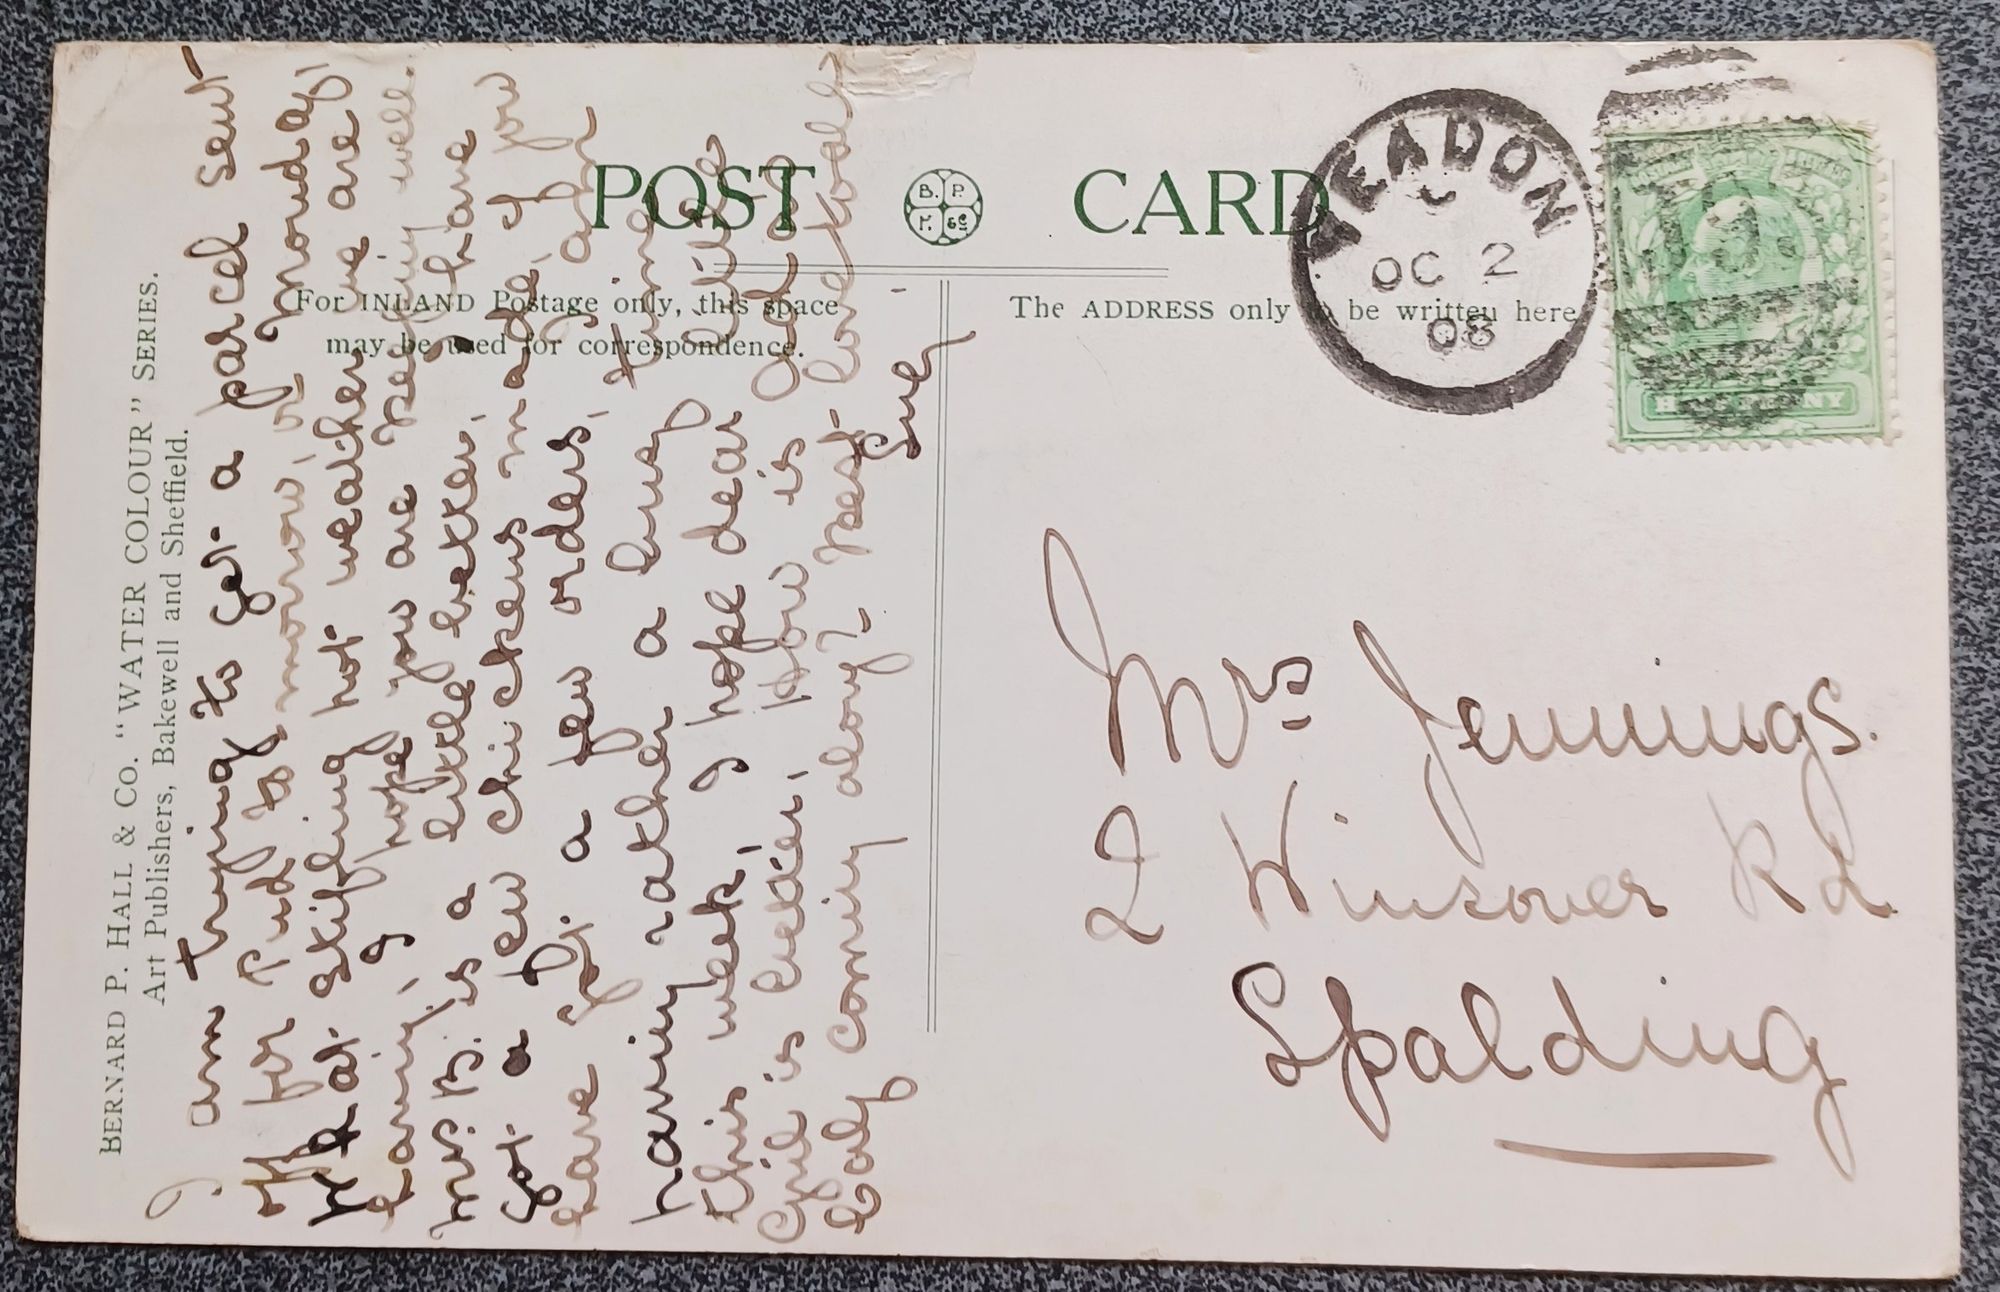 BERNARD P. HALL & CO. "WATER COLOUR" SERIES.
Art Publishers, Bakewell and Sheffield.
POST CARD
B. P. H. & Co
For INLAND Postage only, this space
may be used for correspondence.
The ADDRESS only to be written here
YEADON
OC 2
08
HALF PENNY
I am trying to get a parcel sent
off for Pud to morrow, or Monday,
What stifling hot weather we are
having, I hope you are keeping well.
Mrs B. is a little better, I have
got a few chickens made, if you
have got a few orders,
having rather a busy time
this week, I hope dear little
Cyril is better, How is
baby coming along? Best love to all
Mrs Jennings.
2 Winsover Rd
Spalding